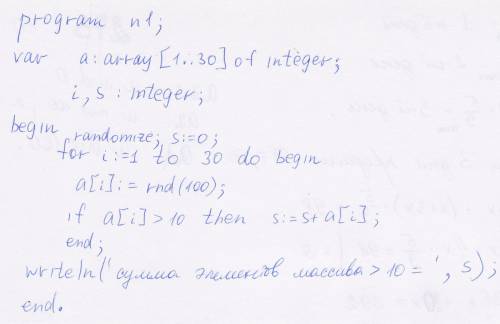 program n1;
var a: array [1..30] of integer;
i, s : integer;
begin randomize; s:=0;
for i:=1 to 30 do begin
a[i]:= rnd(100);
if a[i]>10 then s:=s+a[i];
end;
writeln('сумма элементов массива > 10 = ', s);
end.